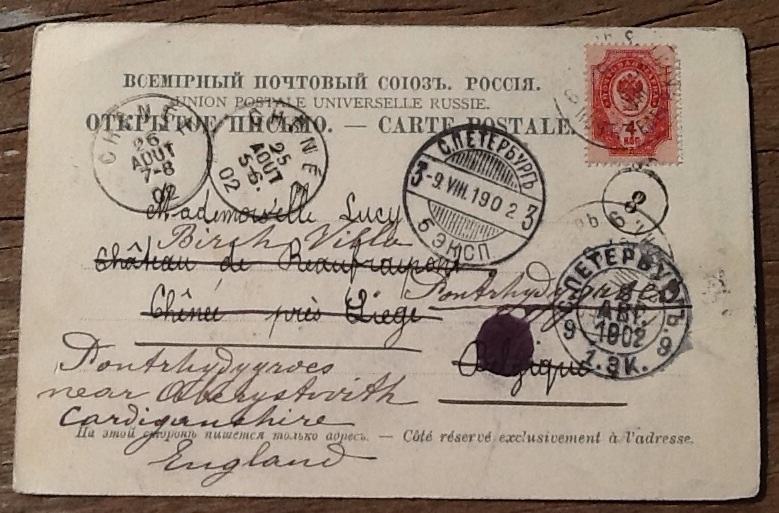 ВСЕМІРНЫЙ ПОЧТОВЫЙ СОЮЗЪ. РОССІЯ.
UNION POSTALE UNIVERSELLE RUSSIE.
ОТКРЫТОЕ ПИСЬМО. — CARTE POSTALE.
4
КОП
CHÊNÉE
26
AOUT
7-8
02
CHÊNÉE
25
AOUT
5-6
02
С.ПЕТЕРБУРГЪ
3 -9.VIII.1902 3
5 ЭКСП
3
Mademoiselle Lucy
Birch Villa
Château de Beaufraipont
Pontrhydygroes
Chênée près Liège
С.ПЕТЕРБУРГЪ.
АВГ
1902
9
1.ЭК.
Belgique
Pontrhydygroes
near Aberystwith
Cardiganshire
На этой сторонѣ пишется только адресъ. — Côté réservé exclusivement à l'adresse.
England